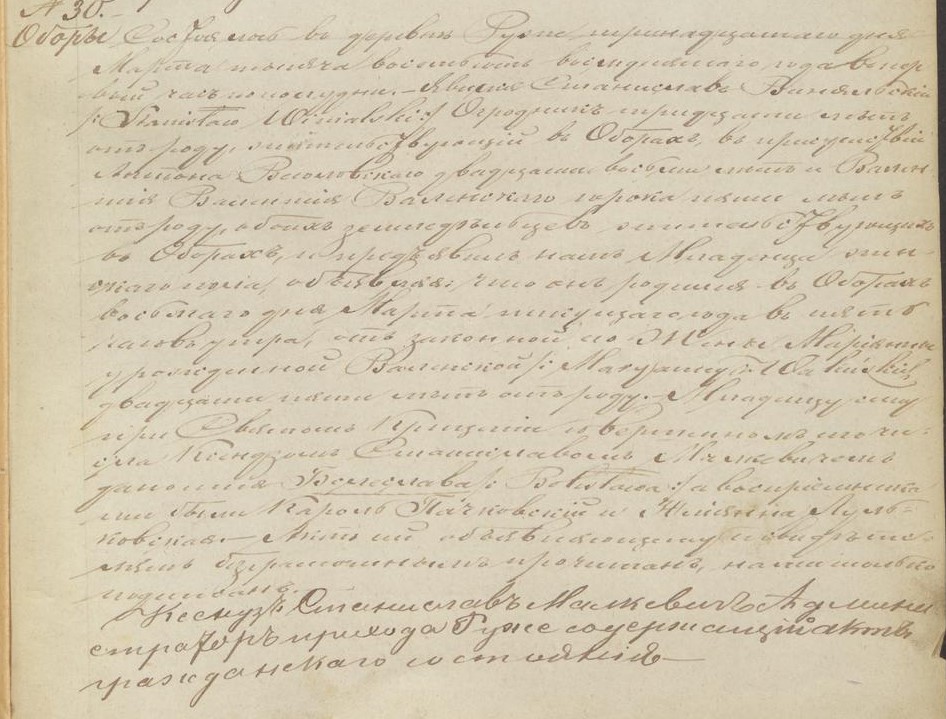 № 30.
Оборы Состоялось въ деревнѣ Ружѣ тринадцатаго дня
Марта тысяча восемьсотъ восемдесятаго года въ пер
вый часъ пополудни. – Явился Станиславъ Виняльскій
/: Stanisław Winialski :/ Огродникъ тридцати лѣтъ
отъ роду, жительствующій въ Оборахъ, въ присутствіи
Антона двадцати восьми лѣтъ и Вален
тія сорока пяти лѣтъ
отъ роду, обоихъ земледѣльцевъ жительствующихъ
въ Оборахъ, и предъявилъ намъ Младенца жен-
скаго пола, объявляя, что онъ родился въ Оборахъ
восьмаго дня Марта текущаго года въ пять
часовъ утра, отъ законной его Жены Маріянны
урожденной Валинской /: Maryanny
двадцати пяти лѣтъ отъ роду. – Младенцу сему
при Святомъ Крещеніи совершенномъ того чи-
сла Ксендзомъ Станиславомъ Малкевичемъ
дано имя Болеслава /: Bolesława :/ а воспріемника
ми были Кароль и
ковская. – Актъ сей объявляющему и свидѣте-
лямъ безграмотнымъ прочитанъ, нами только
подписанъ.
Ксендзъ Станиславъ Малкевичъ Админи
страторъ прихода Руже содержащій акты
гражданскаго состоянія –